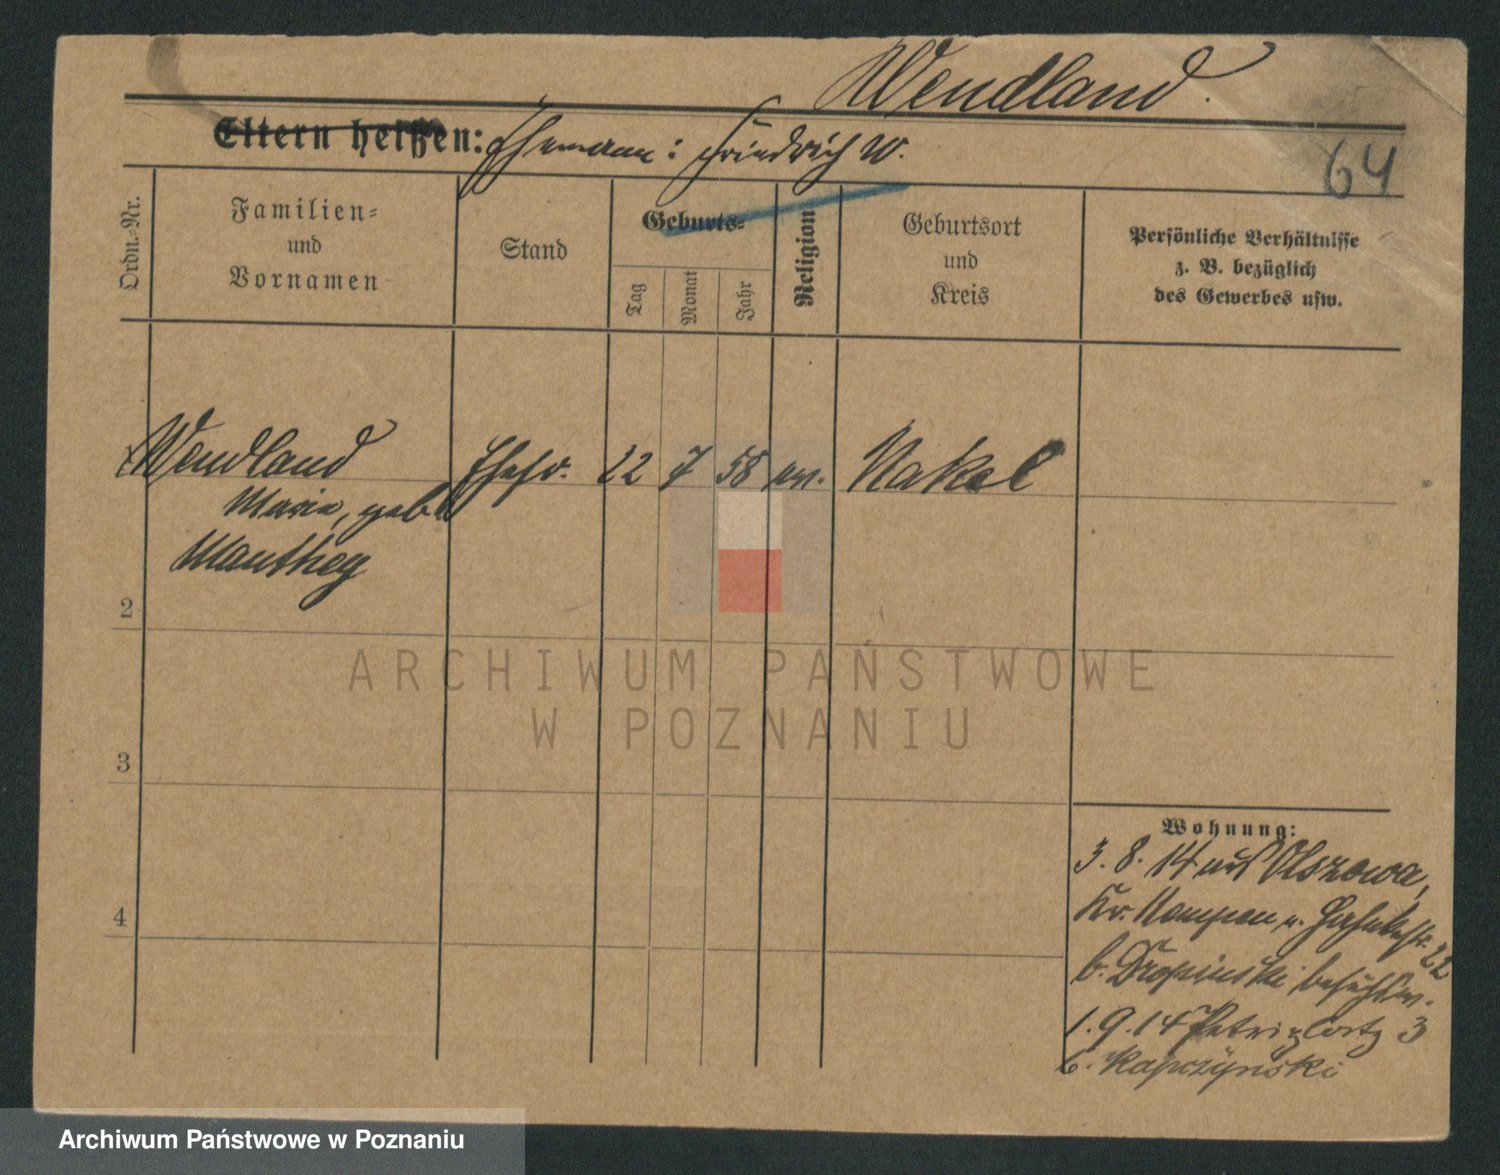 Wendland.
Eltern heißen: Ehemann: Friedrich W.
64
Ordn.-Nr.
Familien-
und
Vornamen
Stand
Geburts-
Tag
Monat
Jahr
Religion
Geburtsort
und
Kreis
Persönliche Verhältnisse
z. B. bezüglich
des Gewerbes usw.
Wendland Ehefr. 22 7 58 ev. Nakel
Marie, geb.
Manthey
2
3
4
Wohnung:
3. 8. 14 aus Olszowa,
Kr. Kempen n. 22
b. besuchsw.
1. 9. 14 Petriplatz 3
b. Kapczynski
ARCHIWUM PAŃSTWOWE
W POZNANIU
Archiwum Państwowe w Poznaniu